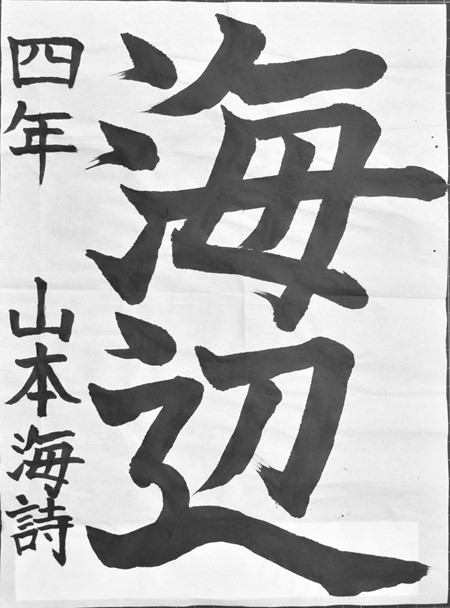 海辺
四年 山本海詩